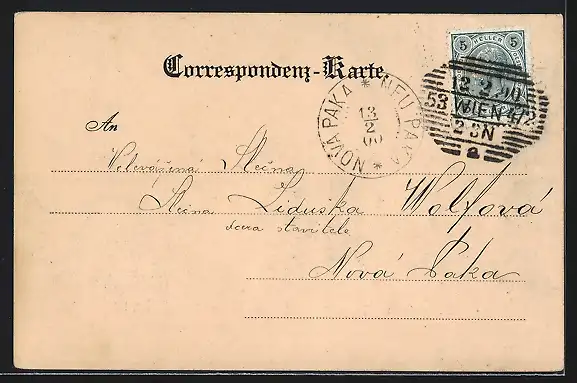 5 HELLER 5
Correspondenz-Karte
12.2.00
53 WIEN 4/2
2 3N
a
* NEU PAKA * NOVÁ PAKA
13
2
00
An
Velevážená Slečna
Slečna Liduška Wolfová
dcera stavitele
Nová Paka